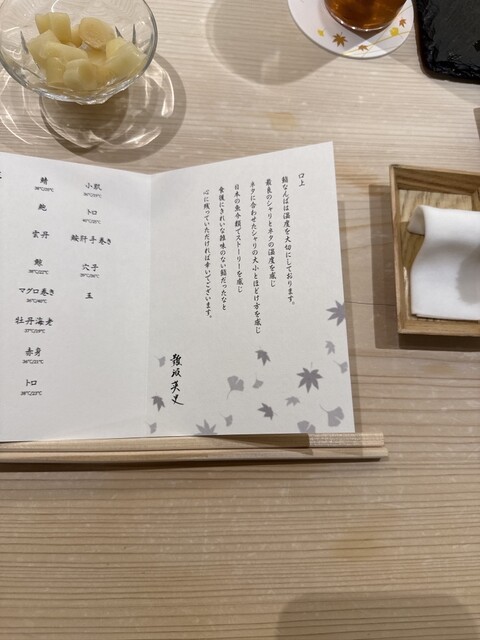 口上
鮨なんばは温度を大切にしております。
最良のシャリとネタの温度を感じ
ネタに合わせたシャリの大小とほどけ方を感じ
日本の魚介類でストーリーを感じ
食後にきれいな雑味のない鮨だったなと
心に残っていただければ幸いでございます。
難波英史
小肌
トロ
鮟肝手巻き
穴子
玉
鯖
鮑
雲丹
マグロ巻き
36℃/40℃
牡丹海老
37℃/19℃
赤身
36℃/21℃
トロ
38℃/22℃